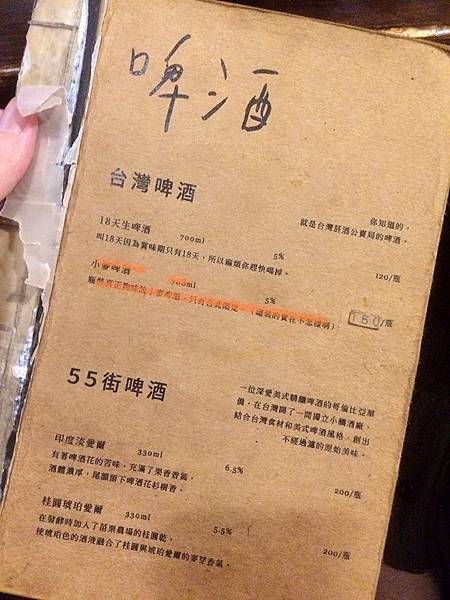 啤酒
台灣啤酒
你知道的，
就是台灣菸酒公賣局的啤酒。
18天生啤酒 700ml 5% 120/瓶
叫18天因為賞味期只有18天，所以麻煩你趕快喝掉。
小麥啤酒 700ml 5% 150/瓶
只有台北限定。
55街啤酒
一位深愛美式精釀啤酒的哥倫比亞華
僑，在台灣開了一間獨立小釀酒廠、
結合台灣食材和美式啤酒風格，創出
不經過濾的原始美味。
印度淡愛爾 330ml 6.5% 200/瓶
有著啤酒花的苦味，充滿了果香香氣，
酒體濃厚，尾韻留下啤酒花杉樹香。
桂圓琥珀愛爾 330ml 5.5% 200/瓶
在發酵時加入了苗栗農場的桂圓乾，
使琥珀色的酒液融合了桂圓與琥珀愛爾的麥芽香氣。